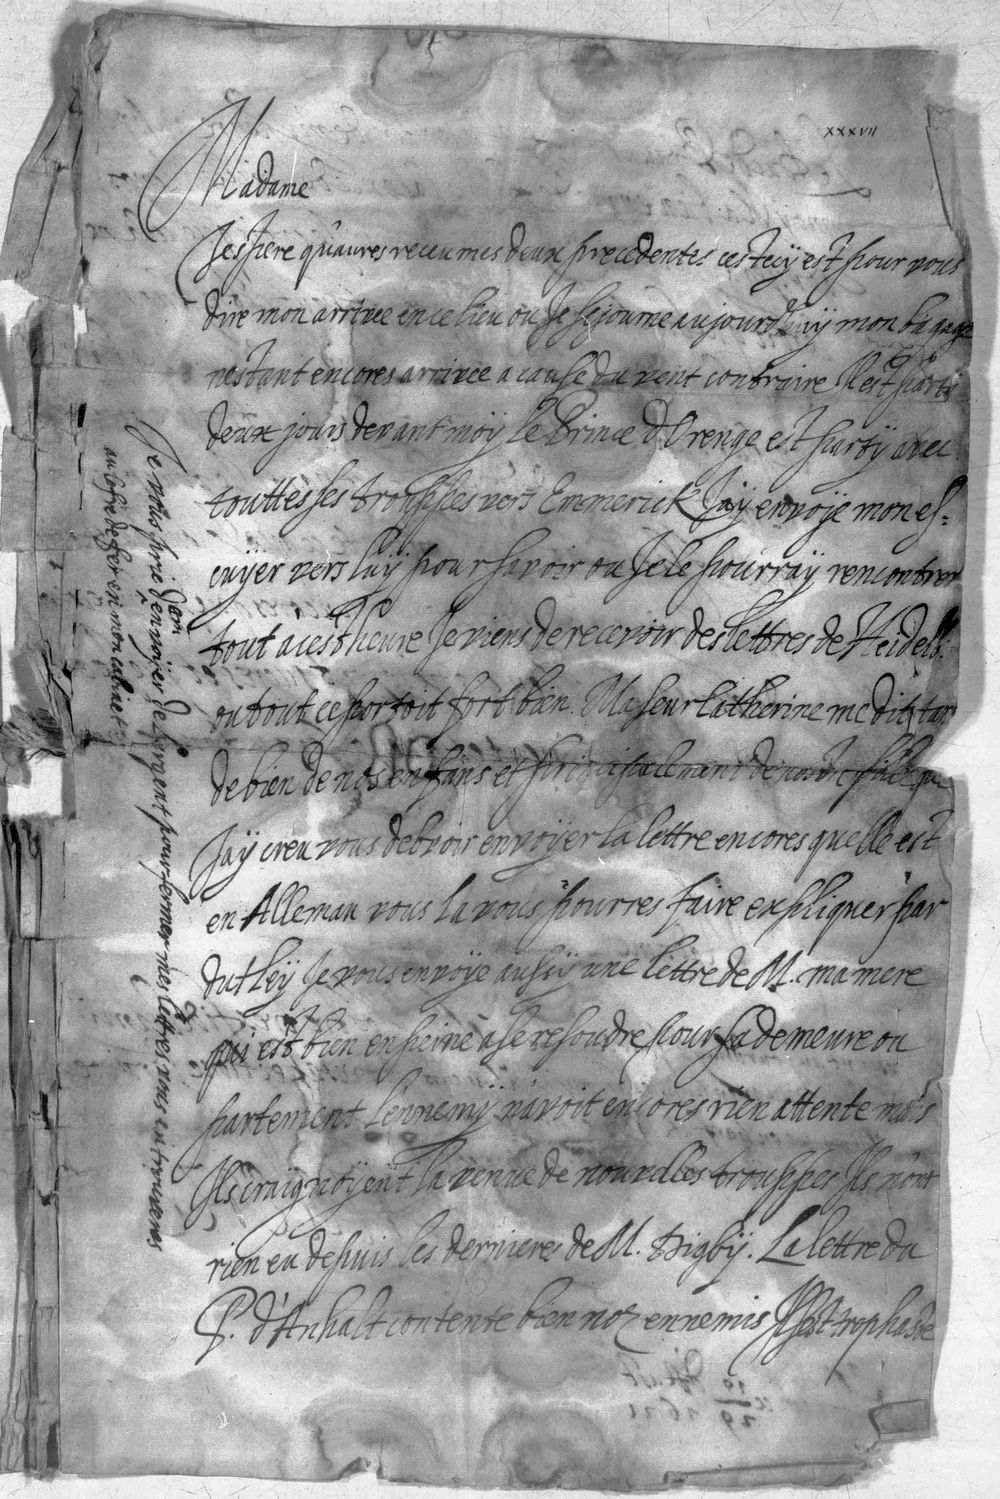 XXXVII
Madame
J'espere qu'aures receu mes deux precedentes cestecy est pour vous
dire mon arrivee en ce lieu ou Je sejourne aujourd'huy mon bagage
n'estant encores arrivee a cause du vent contraire Il est parti
deux jours devant moy Le Prince d'Orenge est party avec
touttes ses trouppes vers Emmerick Jay envoye mon es=
cuyer vers luy pour savoir ou Je le pourray rencontrer
tout a cest heure Je viens de recevoir des lettres de Heidelb:
ou tout ce portoit fort bien. Ma seur Catherine me dit tan
de bien de nos enfans et principallement de fille que
Jay creu vous debvoir envoyer la lettre encores quelle est
en Alleman vous la vous pourres faire expliquer par
dutley Je vous envoye aussy une lettre de M. ma mere
qui est bien en peine a se resoudre pour sa demeure ou
partement L'ennemy n'avoit encores rien attente mais
Ils craignoyent la venue de nouvelles trouppes Ils n'ont
rien eu depuis les dernieres de M. Digby. La lettre du
P. d'Anhalt contente bien noz ennemis Il est trop haste
Je vous prie d'envoyer Jam de l'argent pour fermer mes lettres vous en trouveres
au cofre de fer en mon cabinet